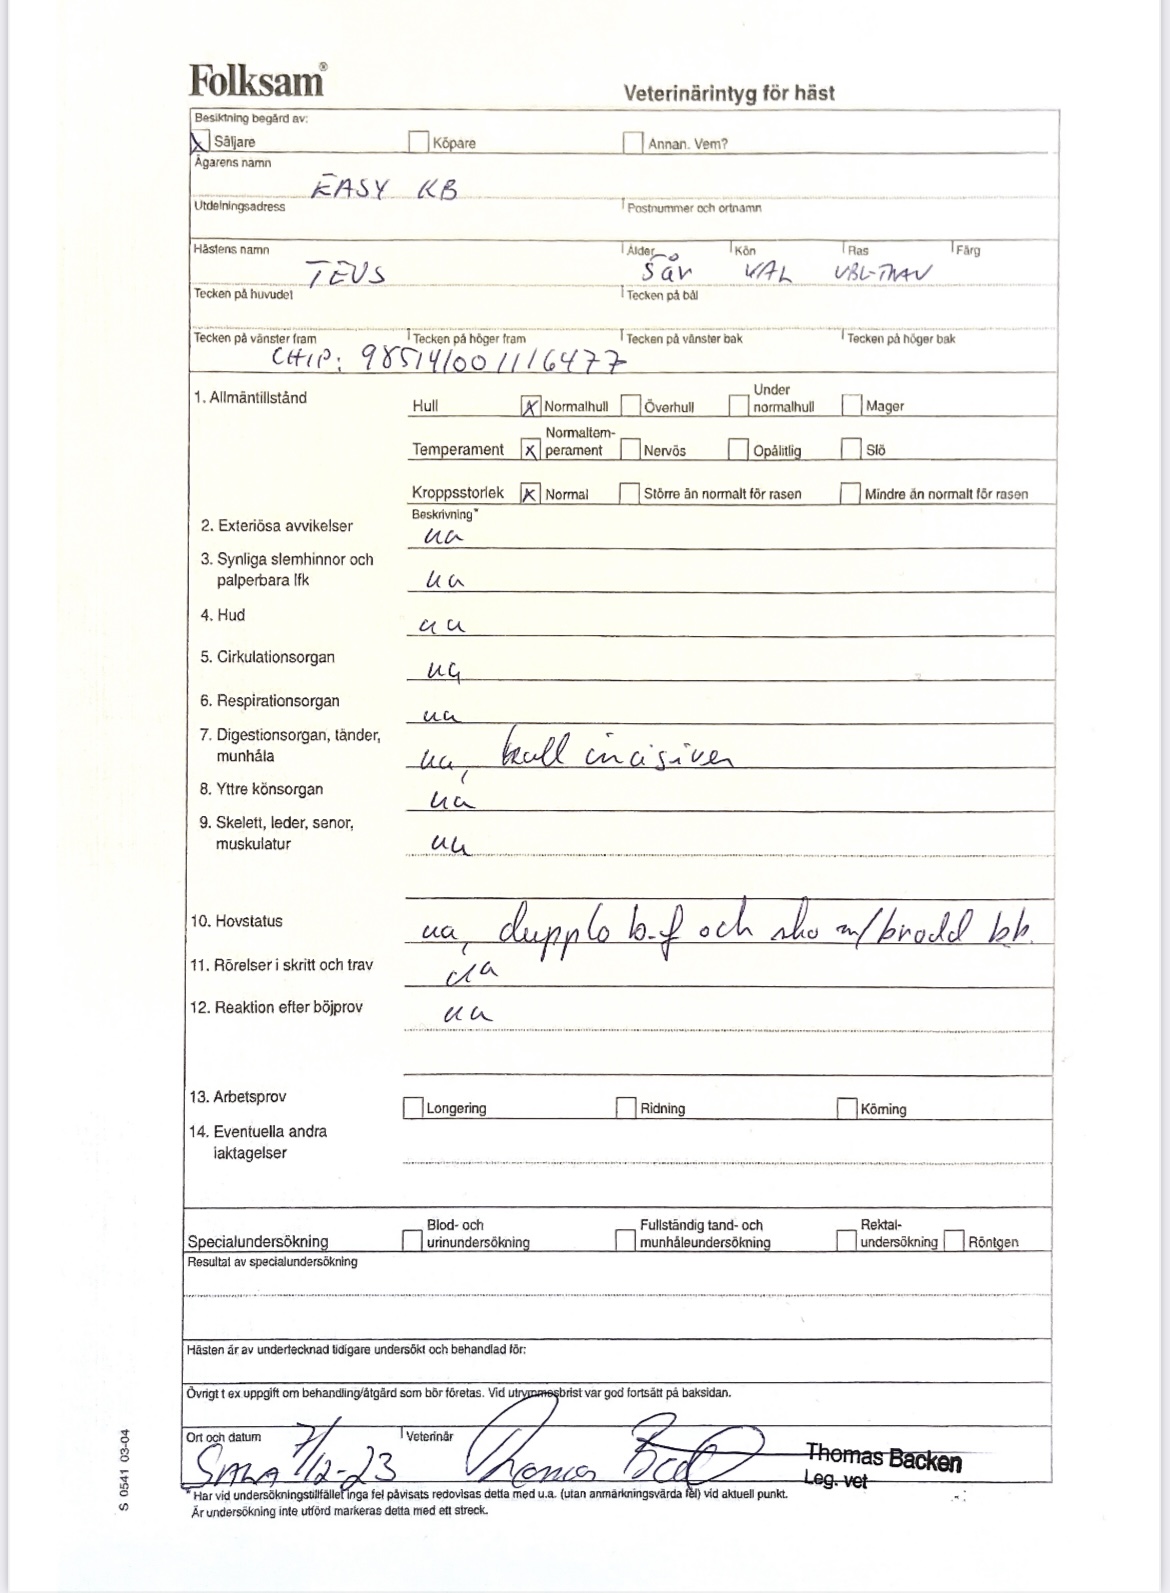 Folksam®
Veterinärintyg för häst
Besiktning begärd av:
Säljare Köpare Annan. Vem?
Ägarens namn
EASY KB
Utdelningsadress Postnummer och ortnamn
Hästens namn Ålder Kön Ras Färg
TEVS 5 år VAL VBL-TRAV
Tecken på huvudet Tecken på bål
Tecken på vänster fram Tecken på höger fram Tecken på vänster bak Tecken på höger bak
CHIP: 985141001116477
1. Allmäntillstånd
Hull Normalhull Överhull Under normalhull Mager
Temperament Normaltem-perament Nervös Opålitlig Slö
Kroppsstorlek Normal Större än normalt för rasen Mindre än normalt för rasen
Beskrivning*
2. Exteriösa avvikelser ua
3. Synliga slemhinnor och
palperbara lfk ua
4. Hud ua
5. Cirkulationsorgan ua
6. Respirationsorgan ua
7. Digestionsorgan, tänder,
munhåla ua, incisiver
8. Yttre könsorgan ua
9. Skelett, leder, senor,
muskulatur ua
10. Hovstatus ua, dupplo b.f och sko m/brodd bb.
11. Rörelser i skritt och trav ua
12. Reaktion efter böjprov ua
13. Arbetsprov Longering Ridning Körning
14. Eventuella andra
iaktagelser
Specialundersökning Blod- och urinundersökning Fullständig tand- och munhåleundersökning Rektal-undersökning Röntgen
Resultal av specialundersökning
Hästen är av undertecknad tidigare undersökt och behandlad för:
Övrigt t ex uppgift om behandling/åtgärd som bör företas. Vid utrymmesbrist var god fortsätt på baksidan.
Ort och datum Veterinär
SALA 7/12-23 Thomas Backen
Thomas Backen
Leg. vet
* Har vid undersökningstillfället inga fel påvisats redovisas detta med u.a. (utan anmärkningsvärda fel) vid aktuell punkt.
Är undersökning inte utförd markeras detta med ett streck.
S 0541 03-04